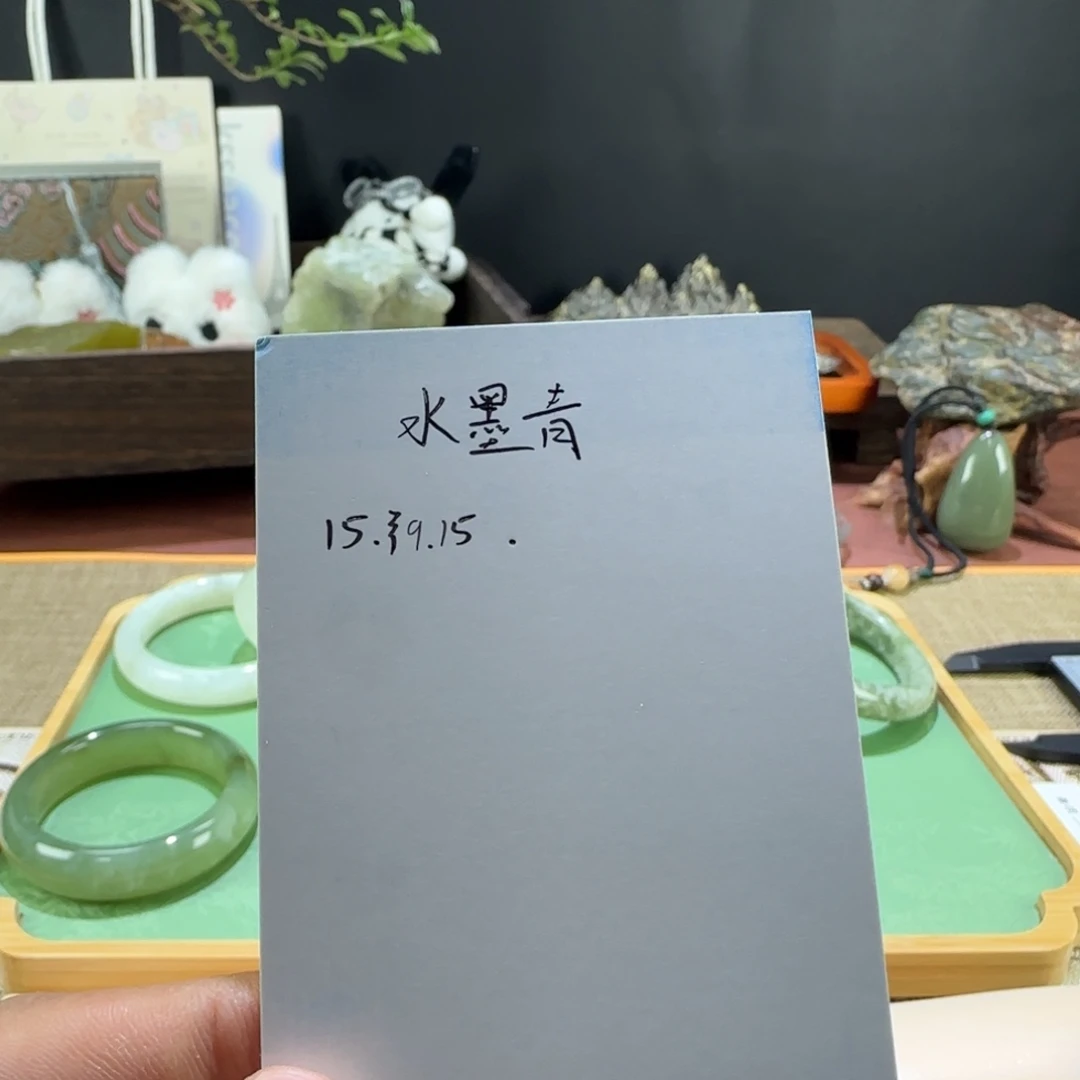 水墨青
15.39.15 .